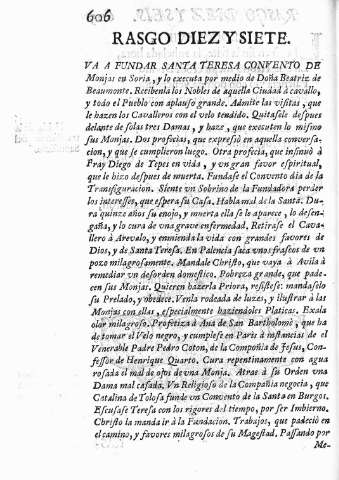 606
RASGO DIEZ Y SIETE.
VA A FUNDAR SANTA TERESA CONVENTO DE
Monjas en Soria, y lo executa por medio de Doña Beatriz de
Beaumonte. Recibenla los Nobles de aquella Ciudad à cavallo,
y todo el Pueblo con aplauso grande. Admite las visitas, que
le hazen los Cavalleros con el velo tendido. Quitasele despues
delante de solas tres Damas, y haze, que executen lo mismo
sus Monjas. Dos profecias, que expresiò en aquella conversa-
cion, y que se cumplieron luego. Otra profecia, que insinuò à
Fray Diego de Yepes en vida, y un gran favor espiritual,
que le hizo despues de muerta. Fundase el Convento dia de la
Transfiguracion. Siente un Sobrino de la Fundadora perder
los interesses, que espera su Casa. Habla mal de la Santa. Du-
ra quinze años su enojo, y muerta ella se le aparece, lo desen-
gaña, y lo cura de una grave enfermedad. Retirase el Cava-
llero à Arevalo, y enmienda la vida con grandes favores de
Dios, y de Santa Teresa. En Palencia saca unos frascos de un
pozo milagrosamente. Mandale Christo, que vaya à Avila à
remediar un desorden domestico. Pobreza grande, que pade-
cen sus Monjas. Quieren hazerla Priora, resistese: mandaselo
su Prelado, y obedece. Venla rodeada de luzes, y ilustrar à las
Monjas con ellas, especialmente haziendoles Platicas. Exala
olor milagroso. Profetiza à Ana de San Bartholomè, que ha
de tomar el Velo negro, y cumplese en Paris à instancias de el
Venerable Padre Pedro Coton, de la Compañia de Jesus, Con-
fessor de Henrique Quarto. Cura repentinamente con agua
rosada el mal de ojos de una Monja. Atrae à su Orden una
Dama mal casada. Un Religioso de la Compañia negocia, que
Catalina de Tolosa funde un Convento de la Santa en Burgos.
Escusase Teresa con los rigores del tiempo, por ser Imbierno.
Christo la manda ir à la Fundacion. Trabajos, que padeciò en
el camino, y favores milagrosos de su Magestad. Passando por
Me-